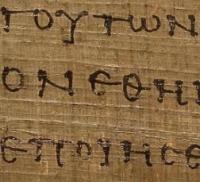 ΤΟΥΤΩΝ
ΟΝΕΘΗΚ
ΕΠΟΙΗϹΕ